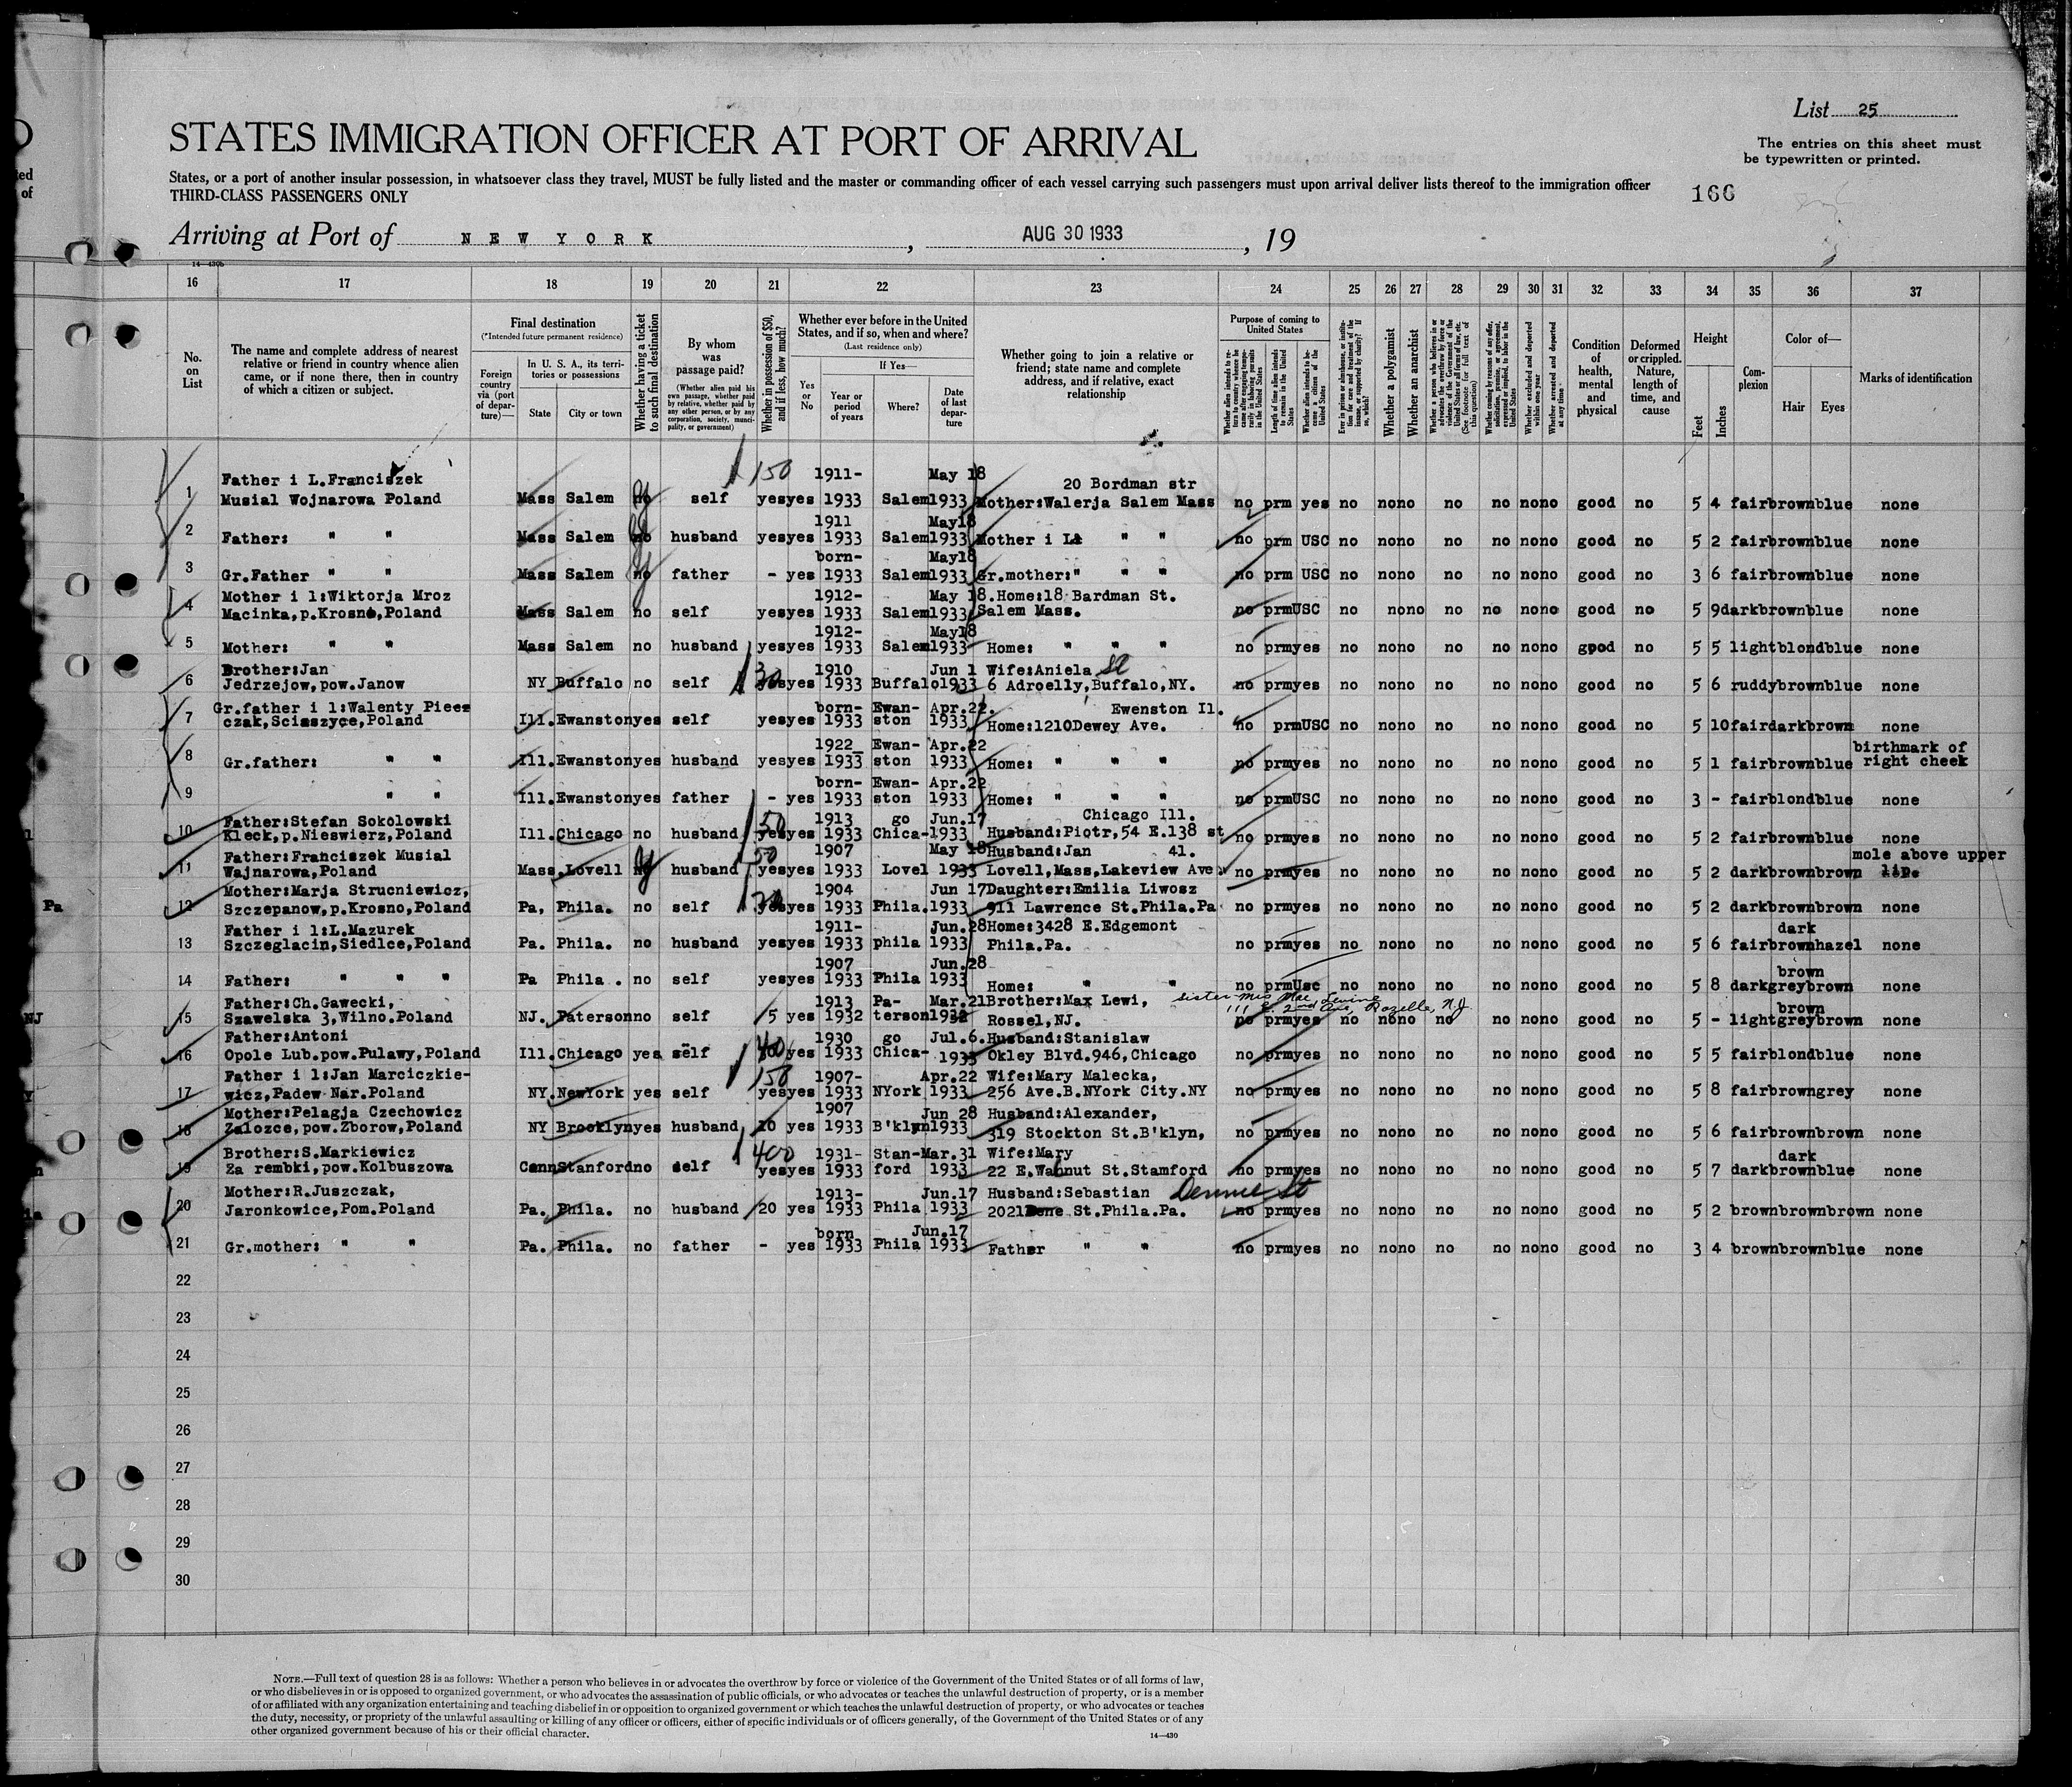 List 25
STATES IMMIGRATION OFFICER AT PORT OF ARRIVAL
The entries on this sheet must
be typewritten or printed.
States, or a port of another insular possession, in whatsoever class they travel, MUST be fully listed and the master or commanding officer of each vessel carrying such passengers must upon arrival deliver lists thereof to the immigration officer
THIRD-CLASS PASSENGERS ONLY
166
Arriving at Port of NEW YORK , AUG 30 1933 , 19
14—430b
16 17 18 19 20 21 22 23 24 25 26 27 28 29 30 31 32 33 34 35 36 37
No. on List
The name and complete address of nearest relative or friend in country whence alien came, or if none there, then in country of which a citizen or subject.
Final destination
(*Intended future permanent residence)
Foreign country via (port of departure)—
In U. S. A., its territories or possessions
State City or town
Whether having a ticket to such final destination
By whom was passage paid?
(Whether alien paid his own passage, whether paid by relative, whether paid by any other person, or by any corporation, society, municipality, or government)
Whether in possession of $50, and if less, how much?
Whether ever before in the United States, and if so, when and where?
(Last residence only)
Yes or No
If Yes—
Year or period of years Where? Date of last departure
Whether going to join a relative or friend; state name and complete address, and if relative, exact relationship
Purpose of coming to United States
Length of time alien intends to remain in the United States
Whether alien intends to become a citizen of the United States
Whether a polygamist
Whether an anarchist
Whether excluded and deported within one year
Whether arrested and deported at any time
Condition of health, mental and physical
Deformed or crippled. Nature, length of time, and cause
Height
Feet Inches
Complexion
Color of—
Hair Eyes
Marks of identification
1 Father i L.Franciszek 150 1911- May 18 20 Bordman str
Musial Wojnarowa Poland Mass Salem no self yes yes 1933 Salem 1933 Mother:Walerja Salem Mass no prm yes no no no no no no no good no 5 4 fair brown blue none
2 1911 May18
Father: " " Mass Salem no husband yes yes 1933 Salem 1933 Mother i L " " no prm USC no no no no no no no good no 5 2 fair brown blue none
3 born- May18
Gr.Father " " Mass Salem no father - yes 1933 Salem 1933 Gr.mother:" " " no prm USC no no no no no no no good no 3 6 fair brown blue none
4 Mother i l:Wiktorja Mroz 1912- May 18. Home:18 Bardman St.
Macinka,p.Krosno,Poland Mass Salem no self yes yes 1933 Salem 1933 Salem Mass. no prm USC no no no no no no no good no 5 9 dark brown blue none
5 1912- May18
Mother: " " Mass Salem no husband yes yes 1933 Salem 1933 Home: " " " no prm yes no no no no no no no good no 5 5 light blond blue none
6 Brother:Jan 30 1910 Jun 1 Wife:Aniela St
Jedrzejow,pow.Janow NY Buffalo no self yes 1933 Buffalo 1933 6 Adroelly,Buffalo,NY. no prm yes no no no no no no no good no 5 6 ruddy brown blue none
7 Gr.father i l:Walenty Piecz born- Ewan- Apr.22. Ewenston Il.
czak,Sciaszyce,Poland Ill. Ewanston yes self yes yes 1933 ston 1933 Home:1210Dewey Ave. no prm USC no no no no no no no good no 5 10 fair dark brown none
8 1922_ Ewan- Apr.22 birthmark of
Gr.father: " " Ill. Ewanston yes husband yes yes 1933 ston 1933 Home: " " " no prm yes no no no no no no no good no 5 1 fair brown blue right cheek
9 born- Ewan- Apr.22
" " Ill. Ewanston yes father - yes 1933 ston 1933 Home: " " " no prm USC no no no no no no no good no 3 - fair blond blue none
10 Father:Stefan Sokolowski 50 1913 go Jun.17 Chicago Ill.
Kleck,p.Nieswierz,Poland Ill. Chicago no husband yes yes 1933 Chica- 1933 Husband:Piotr,54 E.138 st no prm yes no no no no no no no good no 5 2 fair brown blue none
11 Father:Franciszek Musial 50 1907 May 18 Husband:Jan 41. mole above upper
Wajnarowa,Poland Mass, Lovell husband yes yes 1933 Lovel 1933 Lovell,Mass,Lakeview Ave. no prm yes no no no no no no no good no 5 2 dark brown brown lip.
12 Mother:Marja Strucniewicz, 1904 Jun 17 Daughter:Emilia Liwosz
Szczepanow,p.Krosno,Poland Pa, Phila. no self yes 1933 Phila. 1933 911 Lawrence St.Phila.Pa no prm yes no no no no no no no good no 5 2 dark brown brown none
13 Father i l:L.Mazurek 1911- Jun.28 Home:3428 E.Edgemont dark
Szczeglacin,Siedlce,Poland Pa. Phila. no husband yes yes 1933 phila 1933 Phila.Pa. no prm yes no no no no no no no good no 5 6 fair brown hazel none
14 1907 Jun.28 brown
Father: " " " Pa Phila . no self yes yes 1933 Phila 1933 Home: " " no prm Usc no no no no no no no good no 5 8 dark grey brown none
15 Father:Ch.Gawecki, 1913 Pa- Mar.21 Brother:Max Lewi, sister Mrs Mae Levine brown
Szawelska 3,Wilno.Poland NJ. Paterson no self 5 yes 1932 terson 1932 Rossel,NJ. 111 E. 2nd Ave, Rozelle, N.J. no prm yes no no no no no no no good no 5 - light grey brown none
16 Father:Antoni 40 1930 go Jul.6. Husband:Stanislaw
Opole Lub.pow.Pulawy,Poland Ill. Chicago yes self yes 1933 Chica- 1933 Okley Blvd.946,Chicago no prm yes no no no no no no no good no 5 5 fair blond blue none
17 Father i l:Jan Marciczkie- 150 1907- Apr.22 Wife:Mary Malecka,
wicz,Padew Nar.Poland NY. NewYork yes self yes yes 1933 NYork 1933 256 Ave.B.NYork City.NY no prm yes no no no no no no no good no 5 8 fair brown grey none
18 Mother:Pelagja Czechowicz 1907 Jun 28 Husband:Alexander,
Zalozce,pow.Zborow,Poland NY Brooklyn yes husband 10 yes 1933 B'klyn 1933 319 Stockton St.B'klyn, no prm yes no no no no no no no good no 5 6 fair brown brown none
19 Brother:S.Markiewicz 400 1931- Stan- Mar.31 Wife:Mary dark
Za rembki,pow.Kolbuszowa Conn Stanford no self yes yes 1933 ford 1933 22 E.Walnut St.Stamford no prm yes no no no no no no no good no 5 7 dark brown blue none
20 Mother:R.Juszczak, 1913- Jun.17 Husband:Sebastian Dennie St
Jaronkowice,Pom.Poland Pa. Phila. no husband 20 yes 1933 Phila 1933 2021 St.Phila.Pa. no prm yes no no no no no no no good no 5 2 brown brown brown none
21 born Jun.17
Gr.mother: " " Pa. Phila. no father - yes 1933 Phila 1933 Father " " no prm yes no no no no no no no good no 3 4 brown brown blue none
22
23
24
25
26
27
28
29
30
NOTE.—Full text of question 28 is as follows: Whether a person who believes in or advocates the overthrow by force or violence of the Government of the United States or of all forms of law,
or who disbelieves in or is opposed to organized government, or who advocates the assassination of public officials, or who advocates or teaches the unlawful destruction of property, or is a member
of or affiliated with any organization entertaining and teaching disbelief in or opposition to organized government or which teaches the unlawful destruction of property, or who advocates or teaches
the duty, necessity, or propriety of the unlawful assaulting or killing of any officer or officers, either of specific individuals or of officers generally, of the Government of the United States or of any
other organized government because of his or their official character.
14—430